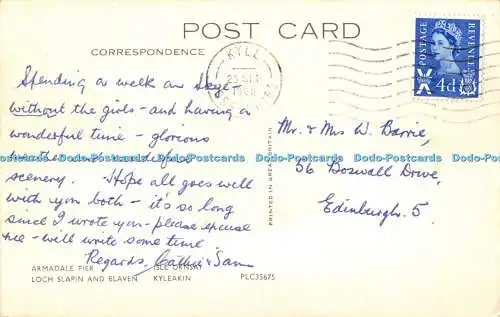 POST CARD
CORRESPONDENCE
KYLE
1968
POSTAGE
REVENUE
4d
Spending a week on Skye -
without the girls - and having a
wonderful time - glorious
weather and wonderful
scenery. Hope all goes well
with you both - it's so long
since I wrote you - please excuse
me - will write some time
Regards, Cathie & Sam
Mr. & Mrs W. Barrie,
56 Boswall Drive,
Edinburgh. 5.
PRINTED IN GREAT BRITAIN
Dodo-Postcards Dodo-Postcards Dodo-Postcards Dodo-Postcards Dodo-Postcards Dodo-Postcards
ARMADALE PIER
ISLE ORNSAY
LOCH SLAPIN AND BLAVEN
KYLEAKIN
PLC35675